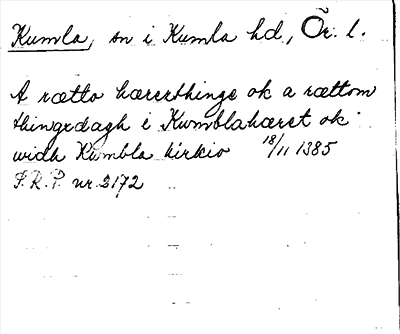 Kumla, sn i Kumla hd, Ör. l.
A rætto hærersthinge ok a rættom
thingxdagh i Kumblahæret ok
widh Kumbla kirkio 18/11 1385
S.R.P. nr. 2172